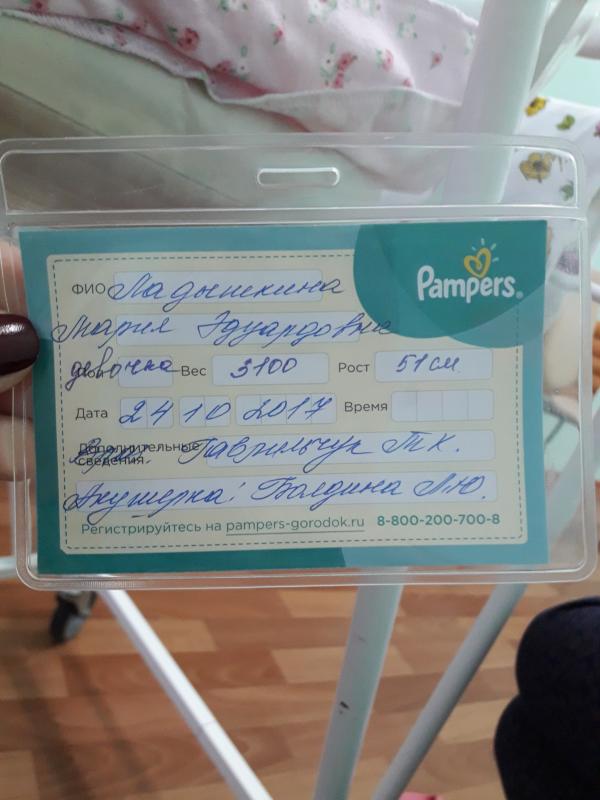 Pampers®
ФИО Ладышкина
Мария Эдуардовна
девочка Вес 3100 Рост 51 см
Дата 24 10 2017 Время
Дополнительные сведения. Врач: Гаврильчук Т.К.
Акушерка: Болдина Л.Ю.
Регистрируйтесь на pampers-gorodok.ru 8-800-200-700-8